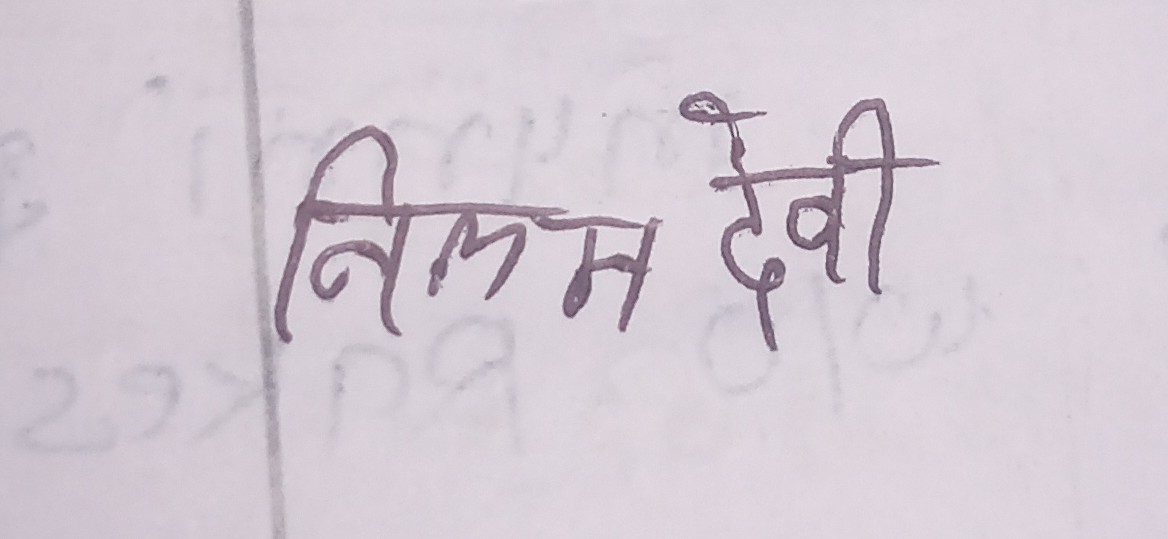 निलम देवी